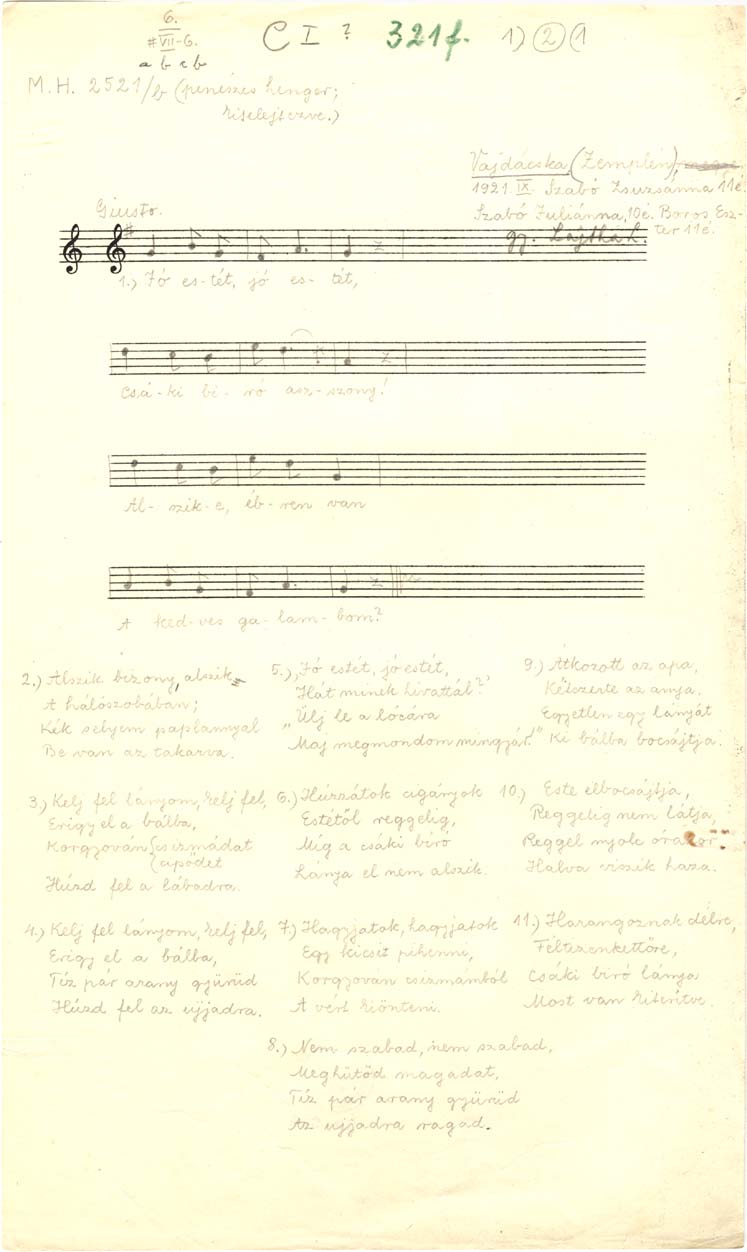 6.
#VII-6.
a b c b
C I ? 321f. 1) 2 (1
M. H. 2521/b (penészes henger;
kiselejtezve.)
Vajdácska, (Zemplén),
1921. IX. Szabó Zsuzsánna 11é.
Szabó Juliánna, 10é. Boros Esz-
ter 11é.
gy. Lajtha L.
Giusto.
1.) Jó es-tét, jó es-tét,
Csá-ki bi-ró asz-szony!
Al-szik-e, éb-ren van
A ked-ves ga-lam-bom?
2.) Alszik bizony, alszik
A hálószobában;
Kék selyem paplannyal
Be van az takarva.
3.) Kelj fel lányom, kelj fel,
Erigy el a bálba,
Korgzován (csizmádat
(cipődet
Húzd fel a lábadra.
4.) Kelj fel lányom, kelj fel,
Erigy el a bálba,
Tíz pár arany gyűrűd
Húzd fel az ujjadra.
5.) „Jó estét, jó estét,
Hát minek hivattál?"
„Ülj le a lócára
Maj megmondom mingyár."
6.) Húzzátok cigányok
Estétől reggelig,
Míg a csáki bíró
Lánya el nem alszik.
7.) Hagyjatok, hagyjatok
Egy kicsit pihenni,
Korgzován csizmámból
A vért kiönteni.
8.) Nem szabad, nem szabad,
Meghűtöd magadat,
Tíz pár arany gyűrűd
Az ujjadra ragad.
9.) Átkozott az apa,
Kétszerte az anya.
Egyetlen egy lányát
Ki bálba bocsájtja.
10.) Este elbocsájtja,
Reggelig nem látja,
Reggel nyolc órakor
Halva viszik haza.
11.) Harangoznak délre,
Féltizenkettőre,
Csáki bíró lánya
Most van kiterítve.